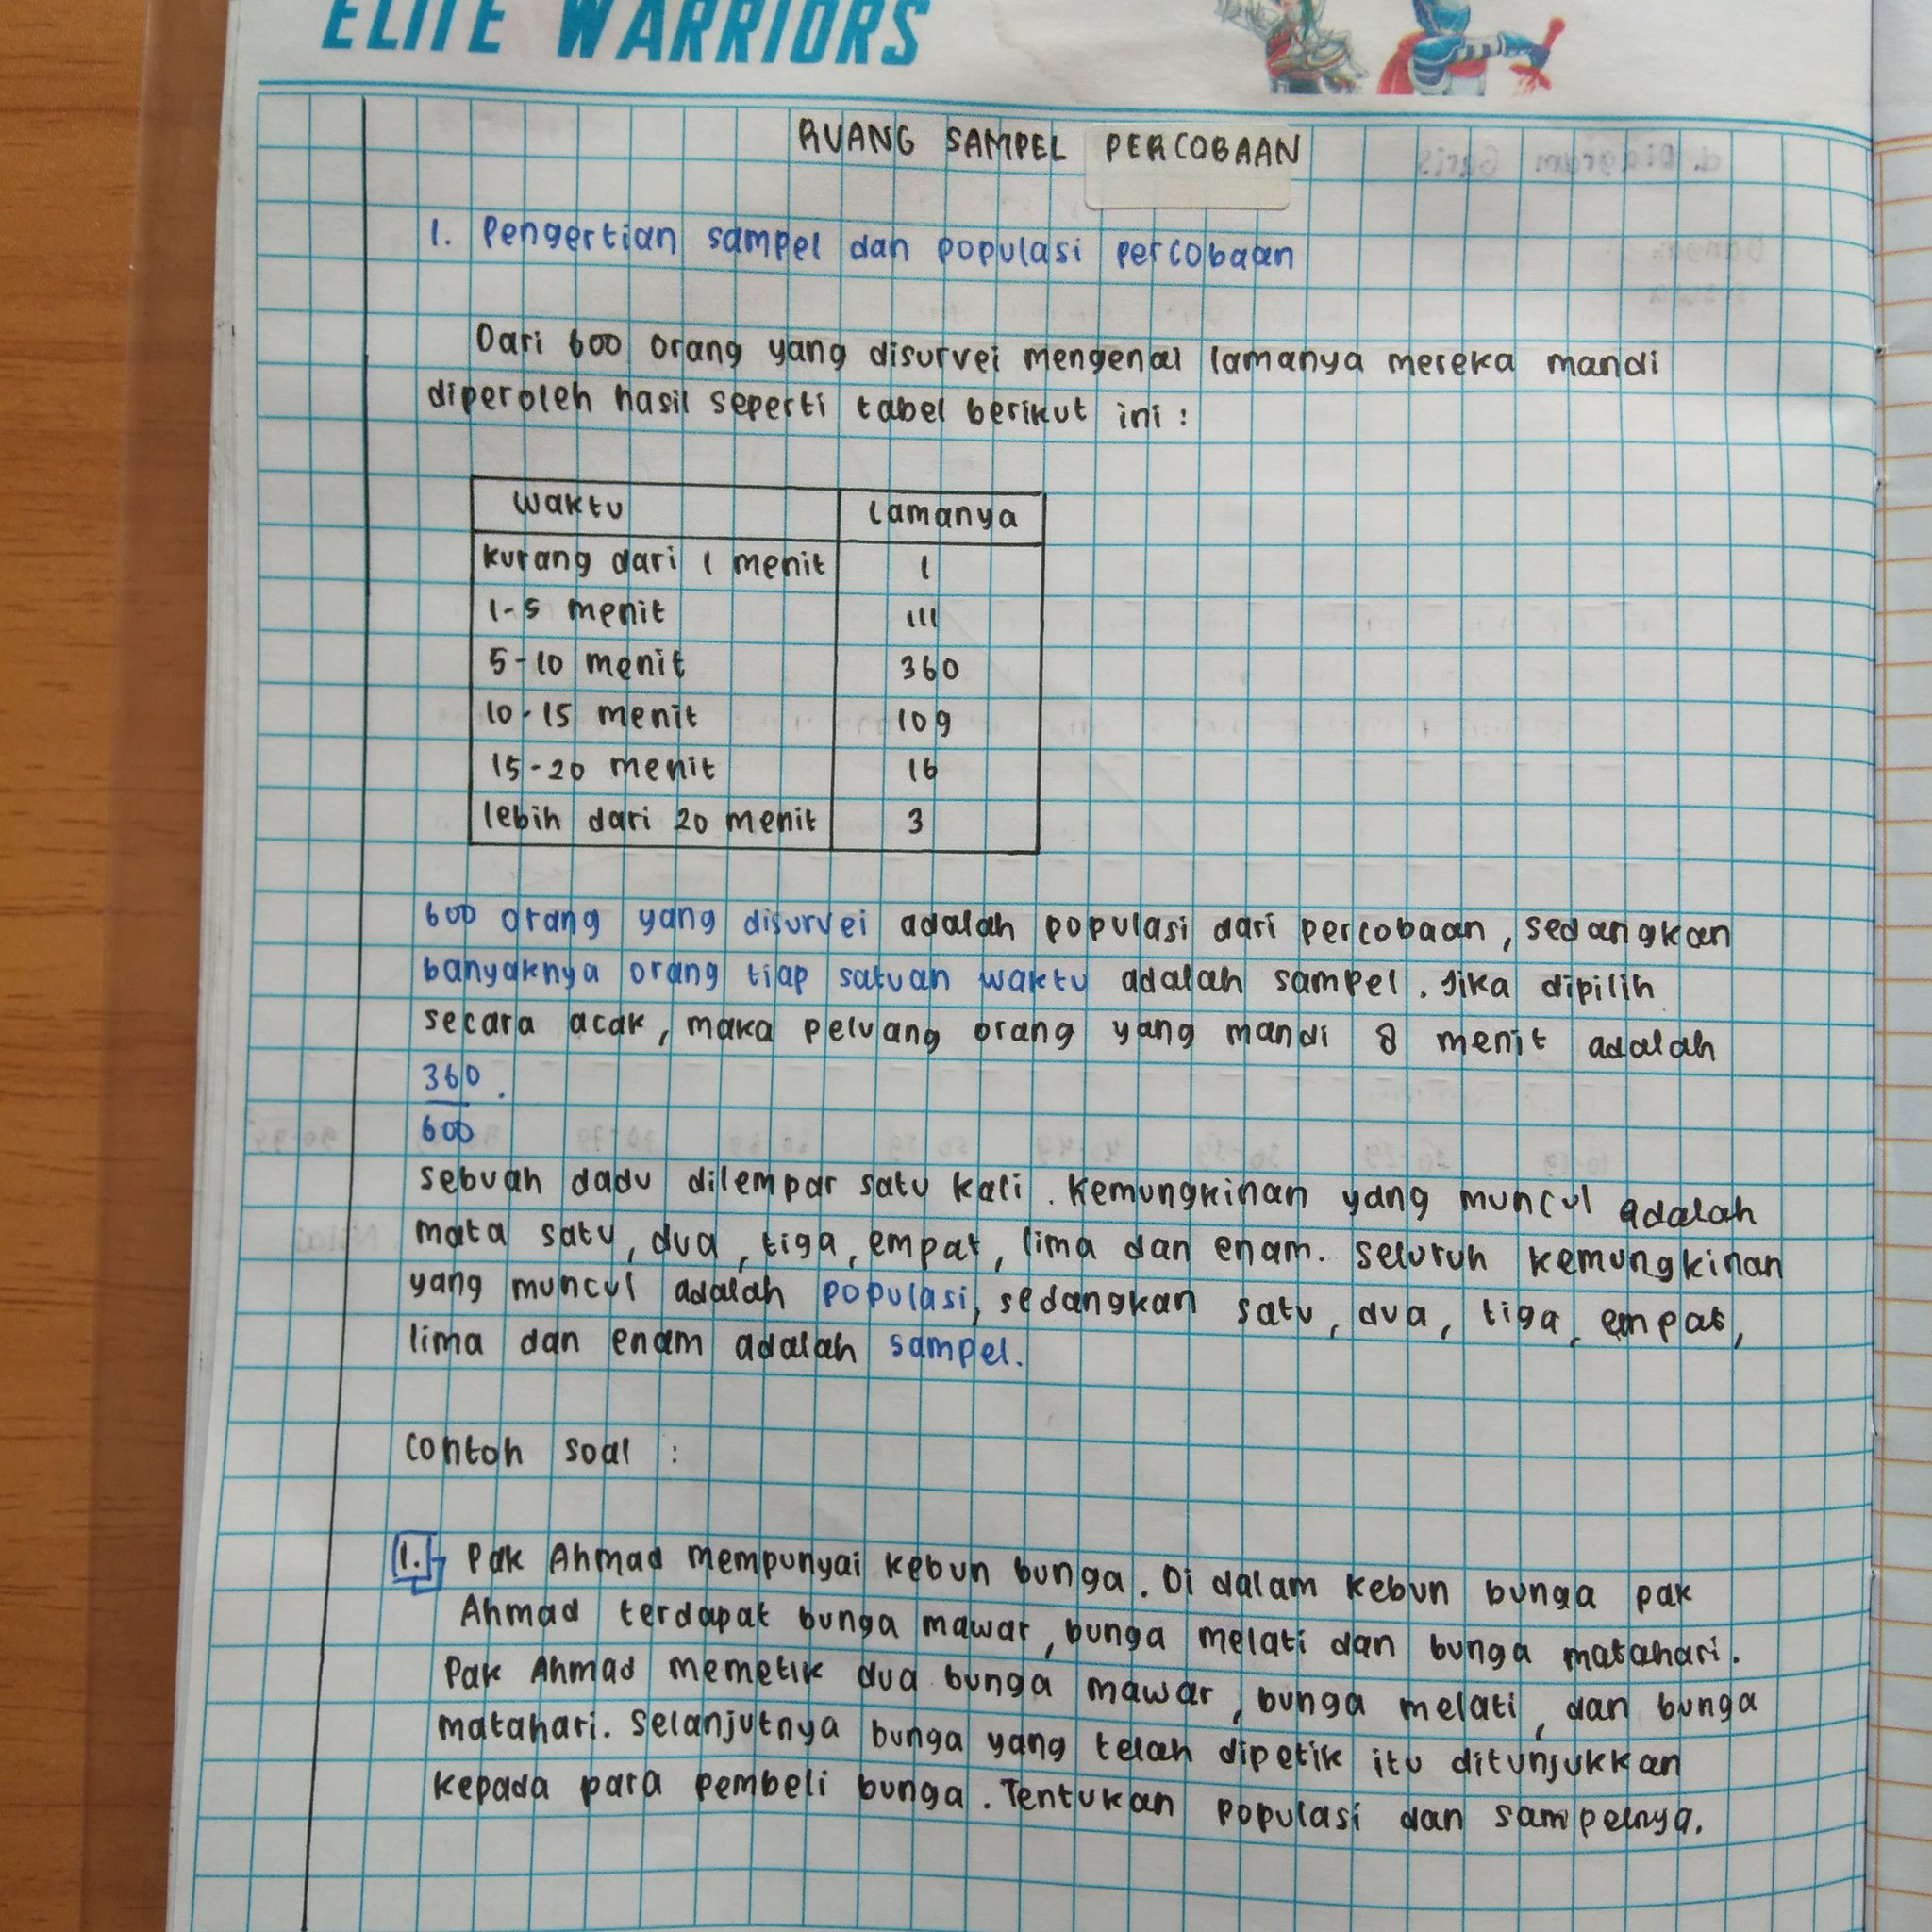 ELITE WARRIORS
RUANG SAMPEL PERCOBAAN
1. Pengertian sampel dan populasi percobaan
Dari 600 orang yang disurvei mengenai lamanya mereka mandi
diperoleh hasil seperti tabel berikut ini :
Waktu Lamanya
kurang dari 1 menit 1
1-5 menit 111
5-10 menit 360
10-15 menit 109
15-20 menit 16
lebih dari 20 menit 3
600 orang yang disurvei adalah populasi dari percobaan, sedangkan
banyaknya orang tiap satuan waktu adalah sampel. Jika dipilih
secara acak, maka peluang orang yang mandi 8 menit adalah
360.
600
sebuah dadu dilempar satu kali. Kemungkinan yang muncul adalah
mata satu, dua, tiga, empat, lima dan enam. seluruh kemungkinan
yang muncul adalah populasi, sedangkan satu, dua, tiga, empat,
lima dan enam adalah sampel.
contoh soal :
1. Pak Ahmad mempunyai kebun bunga. Di dalam kebun bunga pak
Ahmad terdapat bunga mawar, bunga melati dan bunga matahari.
Pak Ahmad memetik dua bunga mawar, bunga melati, dan bunga
matahari. Selanjutnya bunga yang telah dipetik itu ditunjukkan
kepada para pembeli bunga. Tentukan populasi dan sampelnya.